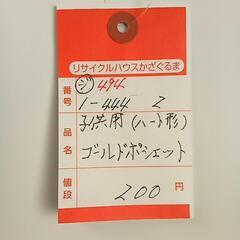 リサイクルハウスかざぐるま
番号
ジ 494
1-444 2
品名
子供用(ハート形)
ゴールドポシェット
値段
200円